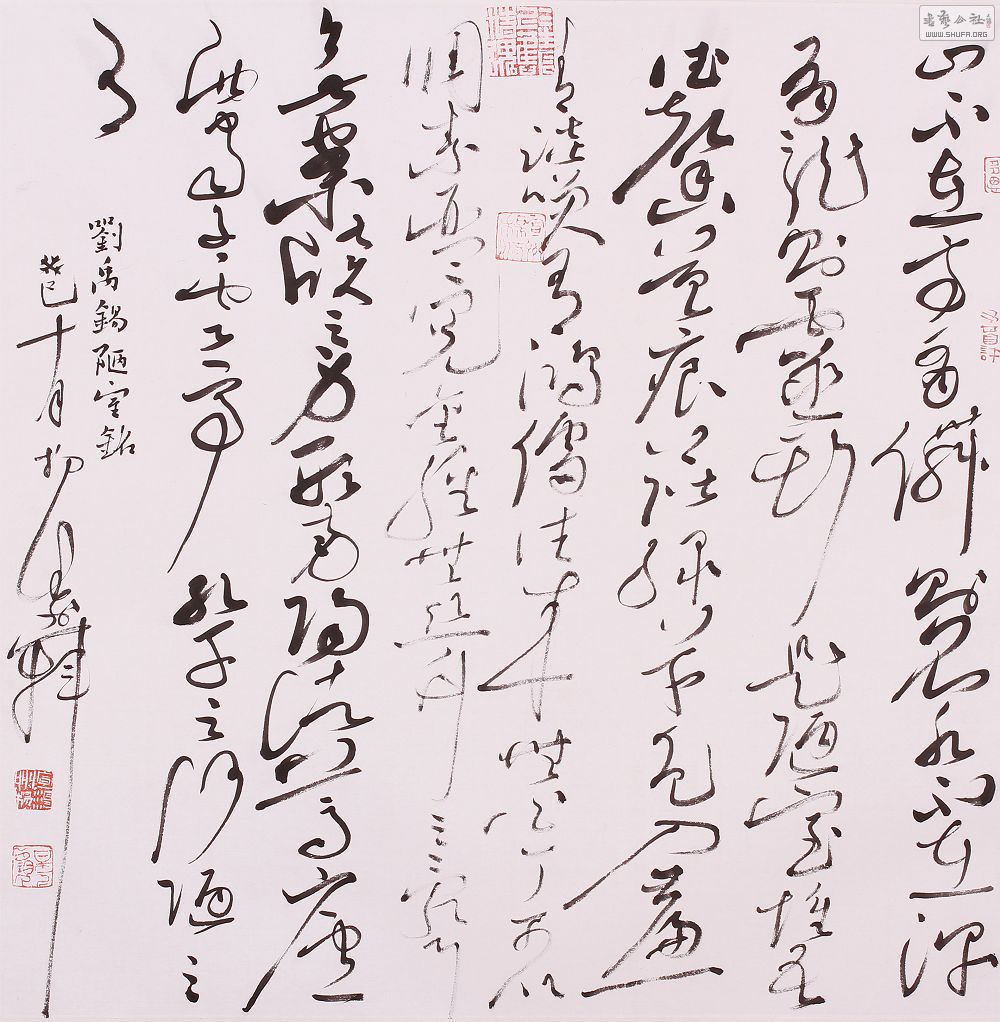 山不在高有僊則名水不在深
有龍則靈斯是陋室惟吾
德馨苔痕上階綠草色入簾
青談笑有鴻儒往來無白丁可以
調素琴閱金經無絲竹之亂耳
無案牘之勞形南陽諸葛廬
西蜀子雲亭孔子云何陋之
有
劉禹錫陋室銘
癸巳十月
書藝公社
WWW.SHUFA.ORG